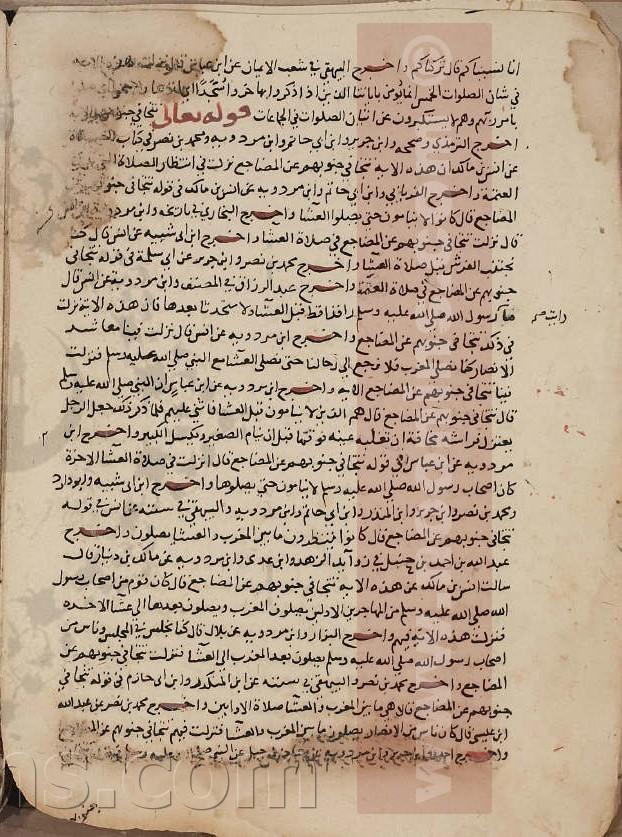 انا نسيناكم قال تركناكم واخرج البيهقي في شعب الايمان عن ابن عباس قال نزلت هذه الاية
في شان الصلوات الخمس انما يومن باياتنا الذين اذا ذكروا بها خروا سجدا
بامر ربهم وهم لا يستكبرون عن اتيان الصلوات في الجماعات قوله تعالى تتجافى جنوبهم
اخرج الترمذي وصححه وابن جرير وابن ابي حاتم وابن مردويه ومحمد بن نصر في كتاب الصلاة
عن انس بن مالك ان هذه الاية تتجافى جنوبهم عن المضاجع نزلت في انتظار الصلاة التي
العتمة واخرج الفريابي وابن ابي حاتم وابن مردويه عن انس بن مالك في قوله تتجافى جنوبهم
المضاجع قال كانوا لا ينامون حتى يصلوا العشا واخرج البخاري في تاريخه وابن مردويه
قال نزلت تتجافى جنوبهم عن المضاجع في صلاة العشا واخرج ابن ابي شيبه عن انس قال كنا
نجتنب الفرش قبل صلاة العشا واخرج محمد بن نصر وابن جرير عن ابي سلمة في قوله تتجافى
جنوبهم عن المضاجع في صلاة العتمة واخرج عبد الرزاق في المصنف وابن مردويه عن انس قال
ما رسول الله صلى الله عليه وسلم راقدا قط قبل العشا ولا متحدثا بعدها فان هذه الاية نزلت
رايت صح
في ذلك تتجافى جنوبهم عن المضاجع واخرج ابن مردويه عن انس قال نزلت فينا معاشر
الانصار كنا نصلي المغرب فلا نرجع الى رحالنا حتى نصلي العشا مع النبي صلى الله عليه وسلم فنزلت
فينا تتجافى جنوبهم عن المضاجع الاية واخرج ابن مردويه عن ابن عباس ان النبي صلى الله عليه وسلم
قال تتجافى جنوبهم عن المضاجع قال هم الذين لا ينامون قبل العشا فاثني عليهم فلما ذكر ذلك جعل الرجل
يعتزل فراشه مخافة ان تغلبه عينه فوقتها قبل ان ينام الصغير ويكسل الكبير واخرج ابن
مردويه عن ابن عباس في قوله تتجافى جنوبهم عن المضاجع قال انزلت في صلاة العشا الاخرة
كان اصحاب رسول الله صلى الله عليه وسلم لا ينامون حتى يصلوها واخرج ابن ابي شيبه وابو داود
ومحمد بن نصر وابن جرير وابن المنذر وابن ابي حاتم وابن مردويه والبيهقي في سننه عن انس في قوله
تتجافى جنوبهم عن المضاجع قال كانوا ينتظرون ما بين المغرب والعشا يصلون واخرج
عبد الله بن احمد بن حنبل في زوايد الزهد وابن عدي وابن مردويه عن مالك بن دينار قال
سالت انس بن مالك عن هذه الاية تتجافى جنوبهم عن المضاجع قال كان قوم من اصحاب رسول
الله صلى الله عليه وسلم من المهاجرين الاولين يصلون المغرب ويصلون بعدها الى عشا الاخره
فنزلت هذه الاية فيهم واخرج البزار وابن مردويه عن بلال قال كنا نجلس في المجلس وناس من
اصحاب رسول الله صلى الله عليه وسلم يصلون بعد المغرب الى العشا فنزلت تتجافى جنوبهم عن
المضاجع واخرج محمد بن نصر والبيهقي في سننه عن ابن المنكدر وابن ابي حازم في قوله تتجافى
جنوبهم عن المضاجع قال هي ما بين المغرب والعشا صلاة الاوابين واخرج محمد بن نصر عن عبد الله
ابن عيسى قال كان ناس من الانصار يصلون ما بين المغرب والعشا فنزلت فيهم تتجافى جنوبهم عن المضاجع
واخرج احمد وابن جرير وابن مردويه عن معاذ بن جبل عن النبي صلى الله عليه وسلم